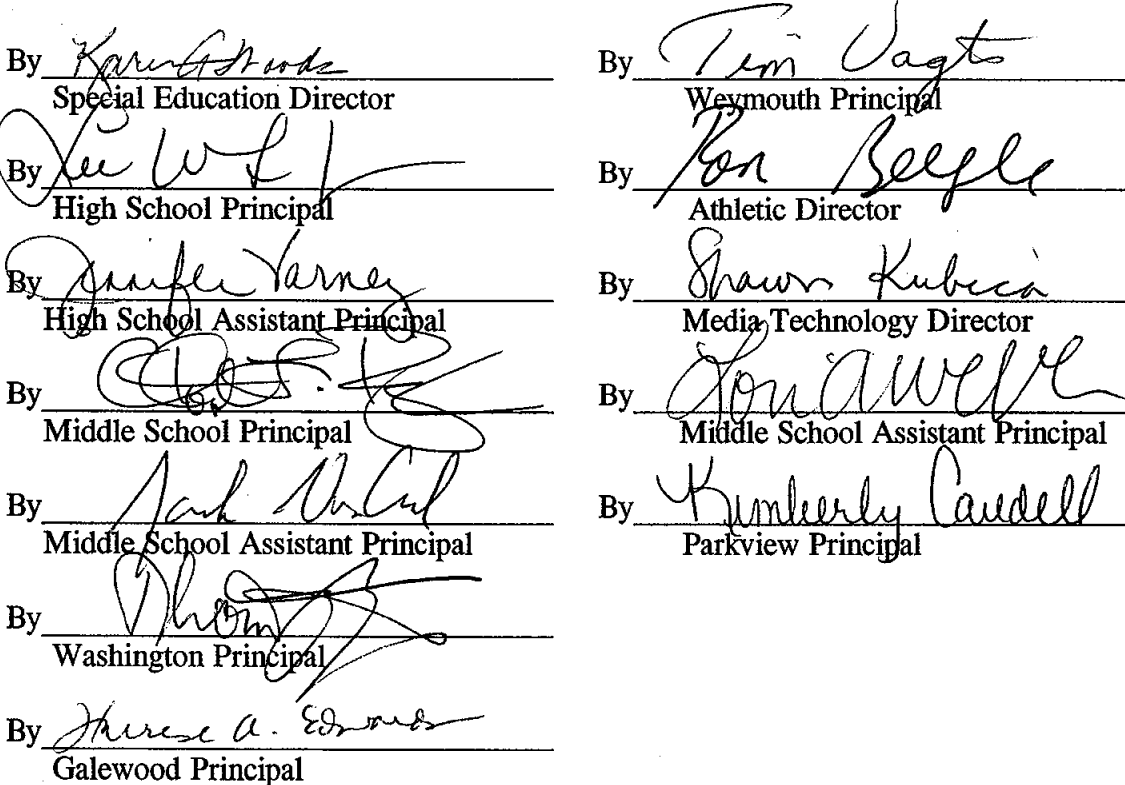 By Karen G Woods
Special Education Director
By Lee W
High School Principal
By Jennifer Varney
High School Assistant Principal
By
Middle School Principal
By
Middle School Assistant Principal
By
Washington Principal
By Therese A. Edwards
Galewood Principal
By Tim Vagts
Weymouth Principal
By Ron Beegle
Athletic Director
By Shawn Kubica
Media Technology Director
By Lori A
Middle School Assistant Principal
By Kimberly Caudell
Parkview Principal